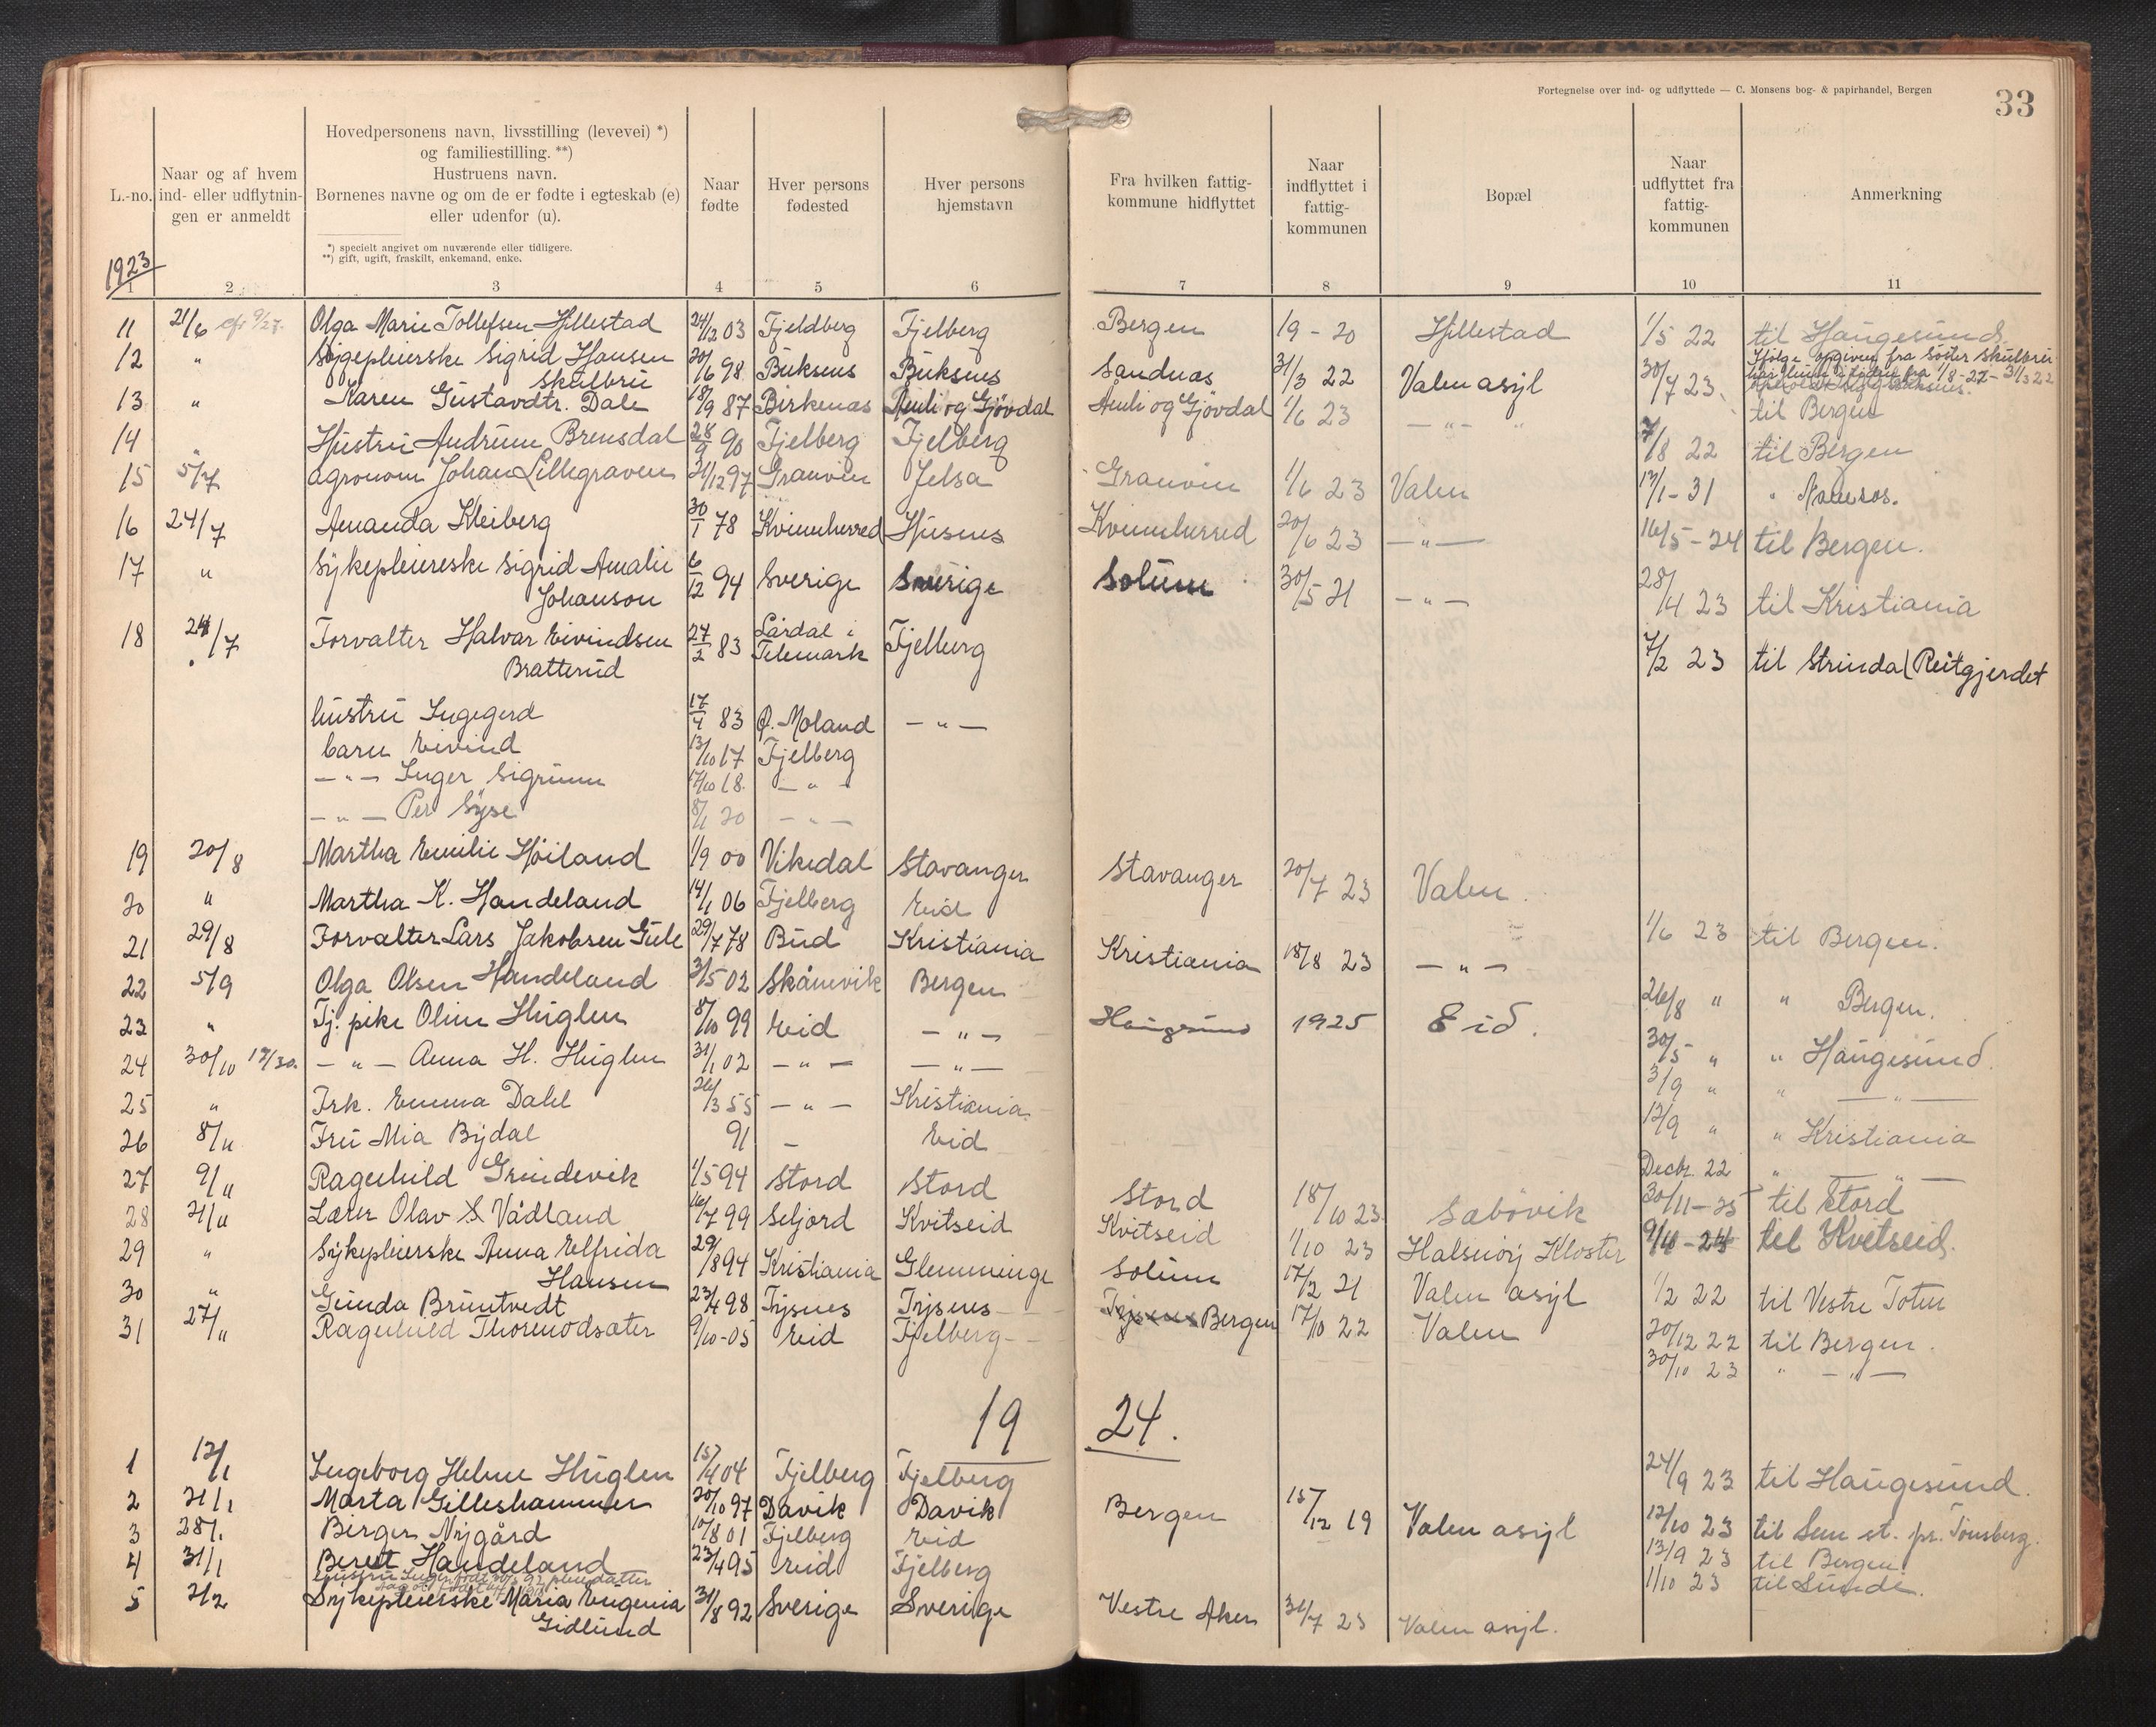 Fortegnelse over ind- og udflyttede — C. Monsens bog- & papirhandel, Bergen
33
L.-no.
Naar og af hvem ind- eller udflytnin- gen er anmeldt
Hovedpersonens navn, livsstilling (levevei) *)
og familiestilling. **)
Hustruens navn.
Børnenes navne og om de er fødte i egteskab (e)
eller udenfor (u).
*) specielt angivet om nuværende eller tidligere.
**) gift, ugift, fraskilt, enkemand, enke.
Naar fødte
Hver persons fødested
Hver persons hjemstavn
Fra hvilken fattig- kommune hidflyttet
Naar indflyttet i fattig- kommunen
Bopæl
Naar udflyttet fra fattig- kommunen
Anmerkning
1923
1 2 3 4 5 6 7 8 9 10 11
11 21/6 Olga Marie Tollefsen Hillestad 24/12 03 Fjeldberg Fjelberg Bergen 19 - 20 Hillestad 1/5 22 til Haugesund
12 " Sygepleierske Sigrid Hansen 20/6 98 Buksnes Buksnes Sandnes 31/3 22 Valen asyl 30/7 23
Skulbru
13 " Karen Gustavdtr. Dale 18/9 87 Birkenæs Åmli og Gjövdal Åmli og Gjövdal 1/6 23 — " — " til Bergen
14 " Hustru Andrine Brensdal 28/9 90 Fjelberg Fjelberg 7/8 22 til Bergen
15 5/7 agronom Johan Lillegraven 31/12 97 Granvin Jelsa Granvin 1/6 23 Valen 17/1-31 "
16 24/7 Amanda Kleiberg 30/1 78 Kvinnherred Husnes Kvinnherred 20/6 23 — " — 16/5-24 til Bergen.
17 " Sykepleiereske Sigrid Amalie 6/12 94 Sverige Sverige Solum 30/5 21 — " — 28/4 23 til Kristiania
Johanson
18 24/7 Forvalter Halvar Eivindsen 27/2 83 Lårdal i Telemark Fjelberg 7/2 23 til Strinda (Reitgjerdet
Bratterud
hustru Ingegerd 17/4 83 Ø. Moland — " —
barn Eivind 13/10 17 Fjelberg
— " — Inger Sigrunn 17/10 18 — " —
— " — Per Syse 8/1 20 — " —
19 20/8 Martha Emilie Höiland 1/9 00 Vikedal Stavanger Stavanger 20/7 23 Valen
20 " Martha K. Handeland 14/1 06 Fjelberg Eid 1/6 23 til Bergen.
21 29/8 Forvalter Lars Jakobsen Gule 29/7 78 Bud Kristiania Kristiania 18/8 23 — " —
22 5/9 Olga Olsen Handeland 3/5 02 Skånevik Bergen 26/8 " " Bergen.
23 " Tj. pike Oline Huglen 8/10 99 Eid — " — Haugesund 1925 Eid. 30/5 " " Haugesund.
24 30/10 17/30. — " — Anna H. Huglen 31/1 02 — " — — " — 3/9 " " — " —
25 " Frk. Emma Dahl 26/3 55 — " — Kristiania 12/9 " " Kristiania
26 8/11 Fru Mia Bydal 91 - Eid Decbr. 22 " — " —
27 9/11 Ragnhild Grindevik 1/5 94 Stord Stord Stord 18/10 23 Sæbövik 30/11-35 til Stord
28 21/11 Lærer Olav S Vådland 16/7 99 Seljord Kvitseid Kvitseid 1/10 23 Halsnöy Kloster 9/10-24 til Kvitseid.
29 " Sykepleierske Anna Elfrida 29/8 94 Kristiania Glemminge Solum 17/2 21 Valen asyl 1/2 22 til Vestre Toten
Hansen
30 " Gunda Bruntvedt 23/4 98 Tysnes Tysnes Tysnes Bergen 17/10 22 Valen 20/12 22 til Bergen.
31 27/11 Ragnhild Thormodsæter 9/10-05 Eid Fjelberg 30/10 23 " — " —
19 24.
1 12/1 Ingeborg Helene Huglen 15/4 04 Fjelberg Fjelberg 24/9 23 til Haugesund.
2 21/1 Marta Gilleshammer 20/10 97 Davik Davik Bergen 15/12 19 Valen asyl 12/10 23 til Sem st. pr. Tönsberg.
3 28/1 Birger Nygård 10/8 01 Fjelberg Eid 13/9 23 til Bergen
4 31/1 Berent Handeland 23/4 95 Eid Fjelberg 1/10 23 til Sunde.
5 2/2 Sykepleierske Maria Eugenia 31/8 92 Sverige Sverige Vestre Aker 31/7 23 Valen asyl.
Gidlund